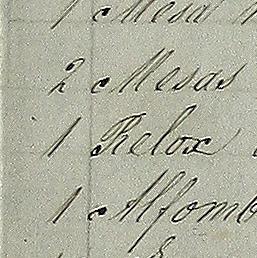 1 Mesa
2 Mesas
1 Relox
1 Alfomb